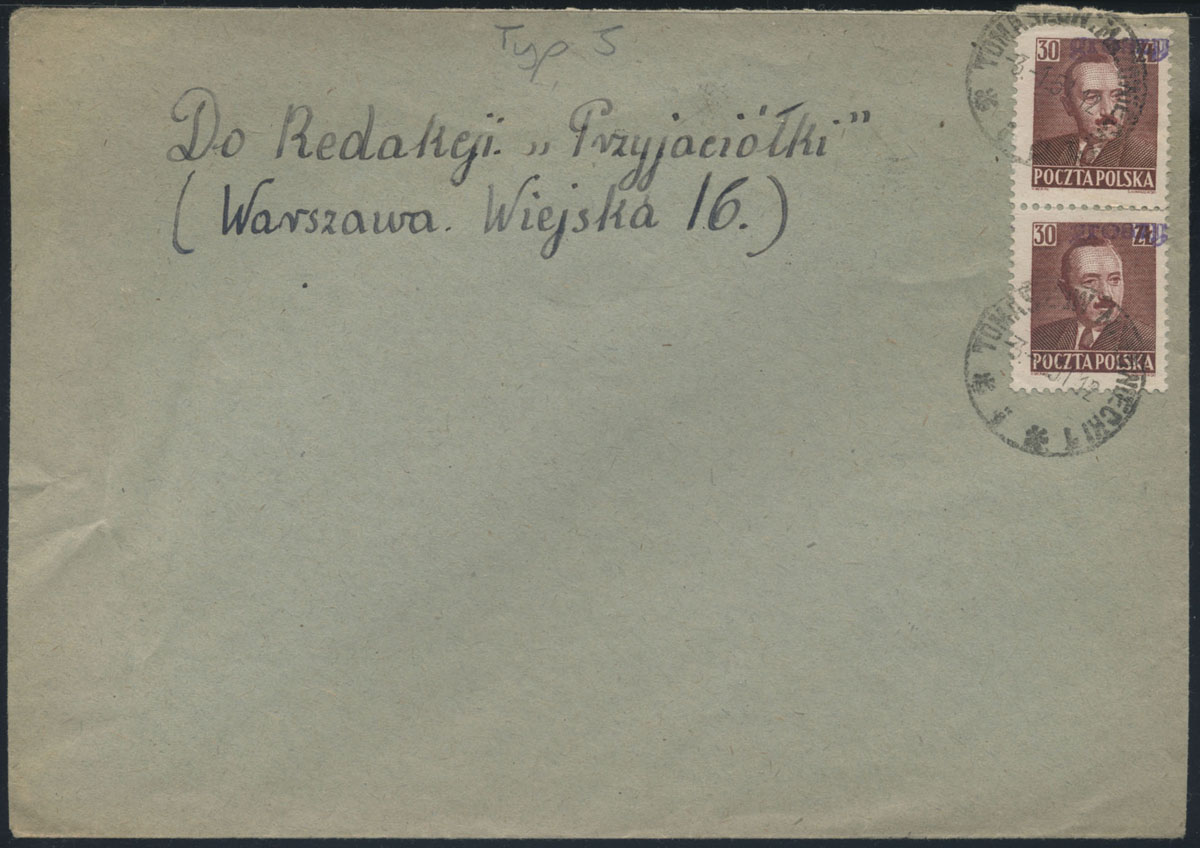 Typ 5
Do Redakcji. „Przyjaciółki"
(Warszawa. Wiejska 16.)
30 ZŁ
POCZTA POLSKA
30 ZŁ
POCZTA POLSKA